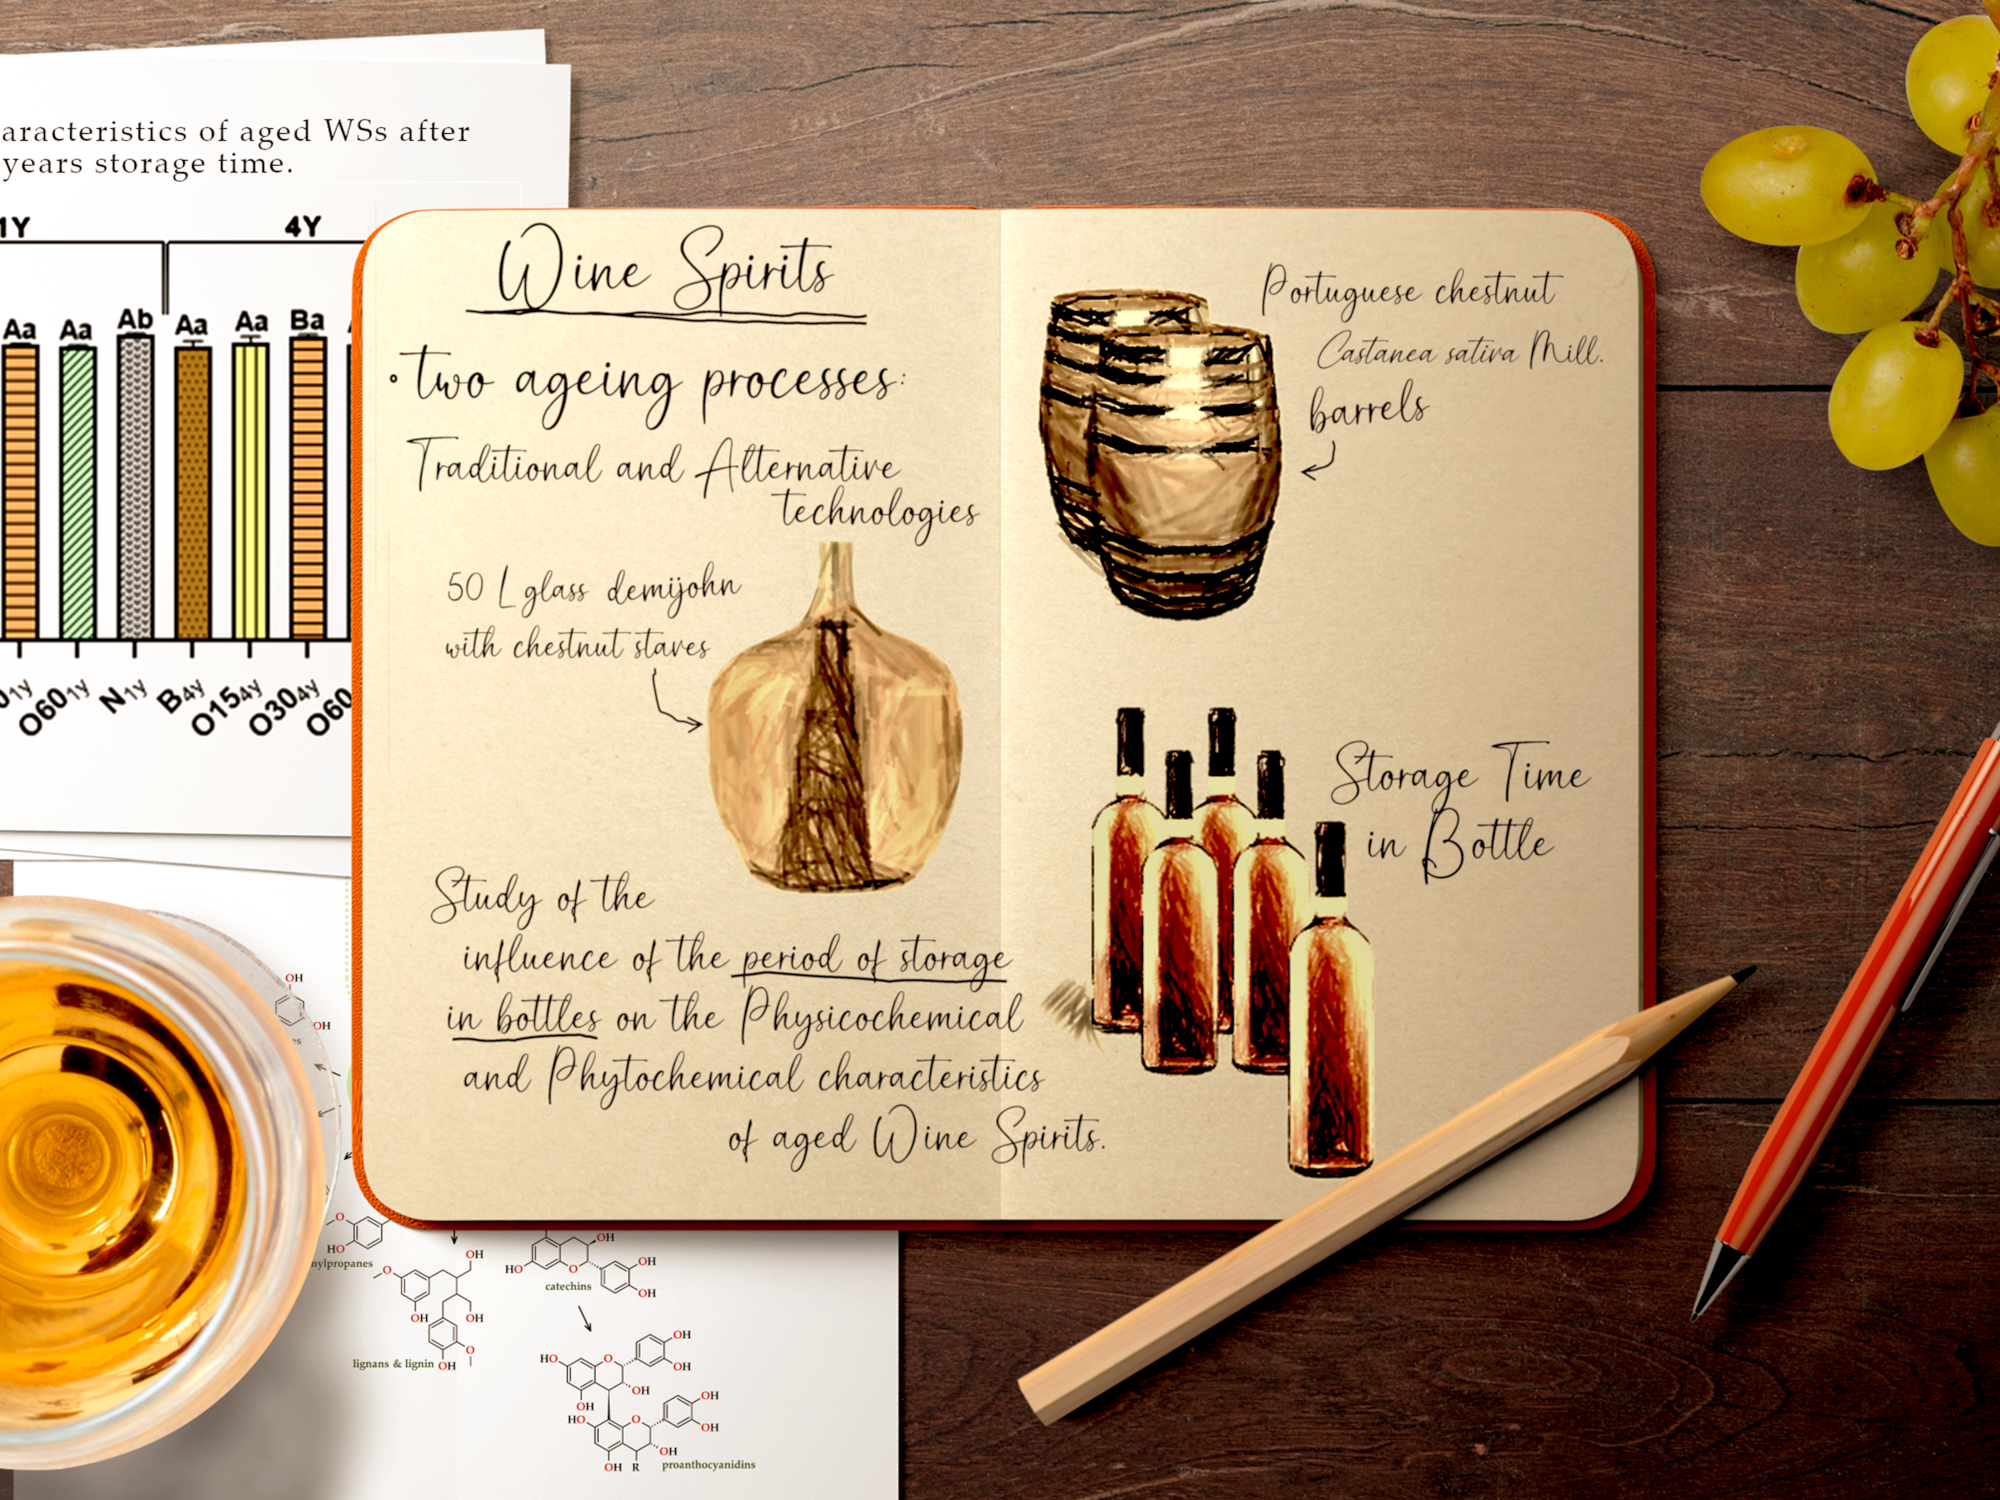 aracteristics of aged WSs after
years storage time.
1Y 4Y
Aa Aa Ab Aa Aa Ba
O601Y N1Y B4Y O154Y O304Y O60
Wine Spirits
• two ageing processes:
Traditional and Alternative
technologies
50 L glass demijohn
with chestnut staves
Study of the
influence of the period of storage
in bottles on the Physicochemical
and Phytochemical characteristics
of aged Wine Spirits.
Portuguese chestnut
Castanea sativa Mill.
barrels
Storage Time
in Bottle
OH
OH
es
O
HO
nylpropanes
OH
O
OH
OH
O
lignans & lignin OH
OH
OH
HO O
OH
catechins
OH
HO O
OH
OH
OH
HO
OH
O
OH
OH
OH R proanthocyanidins